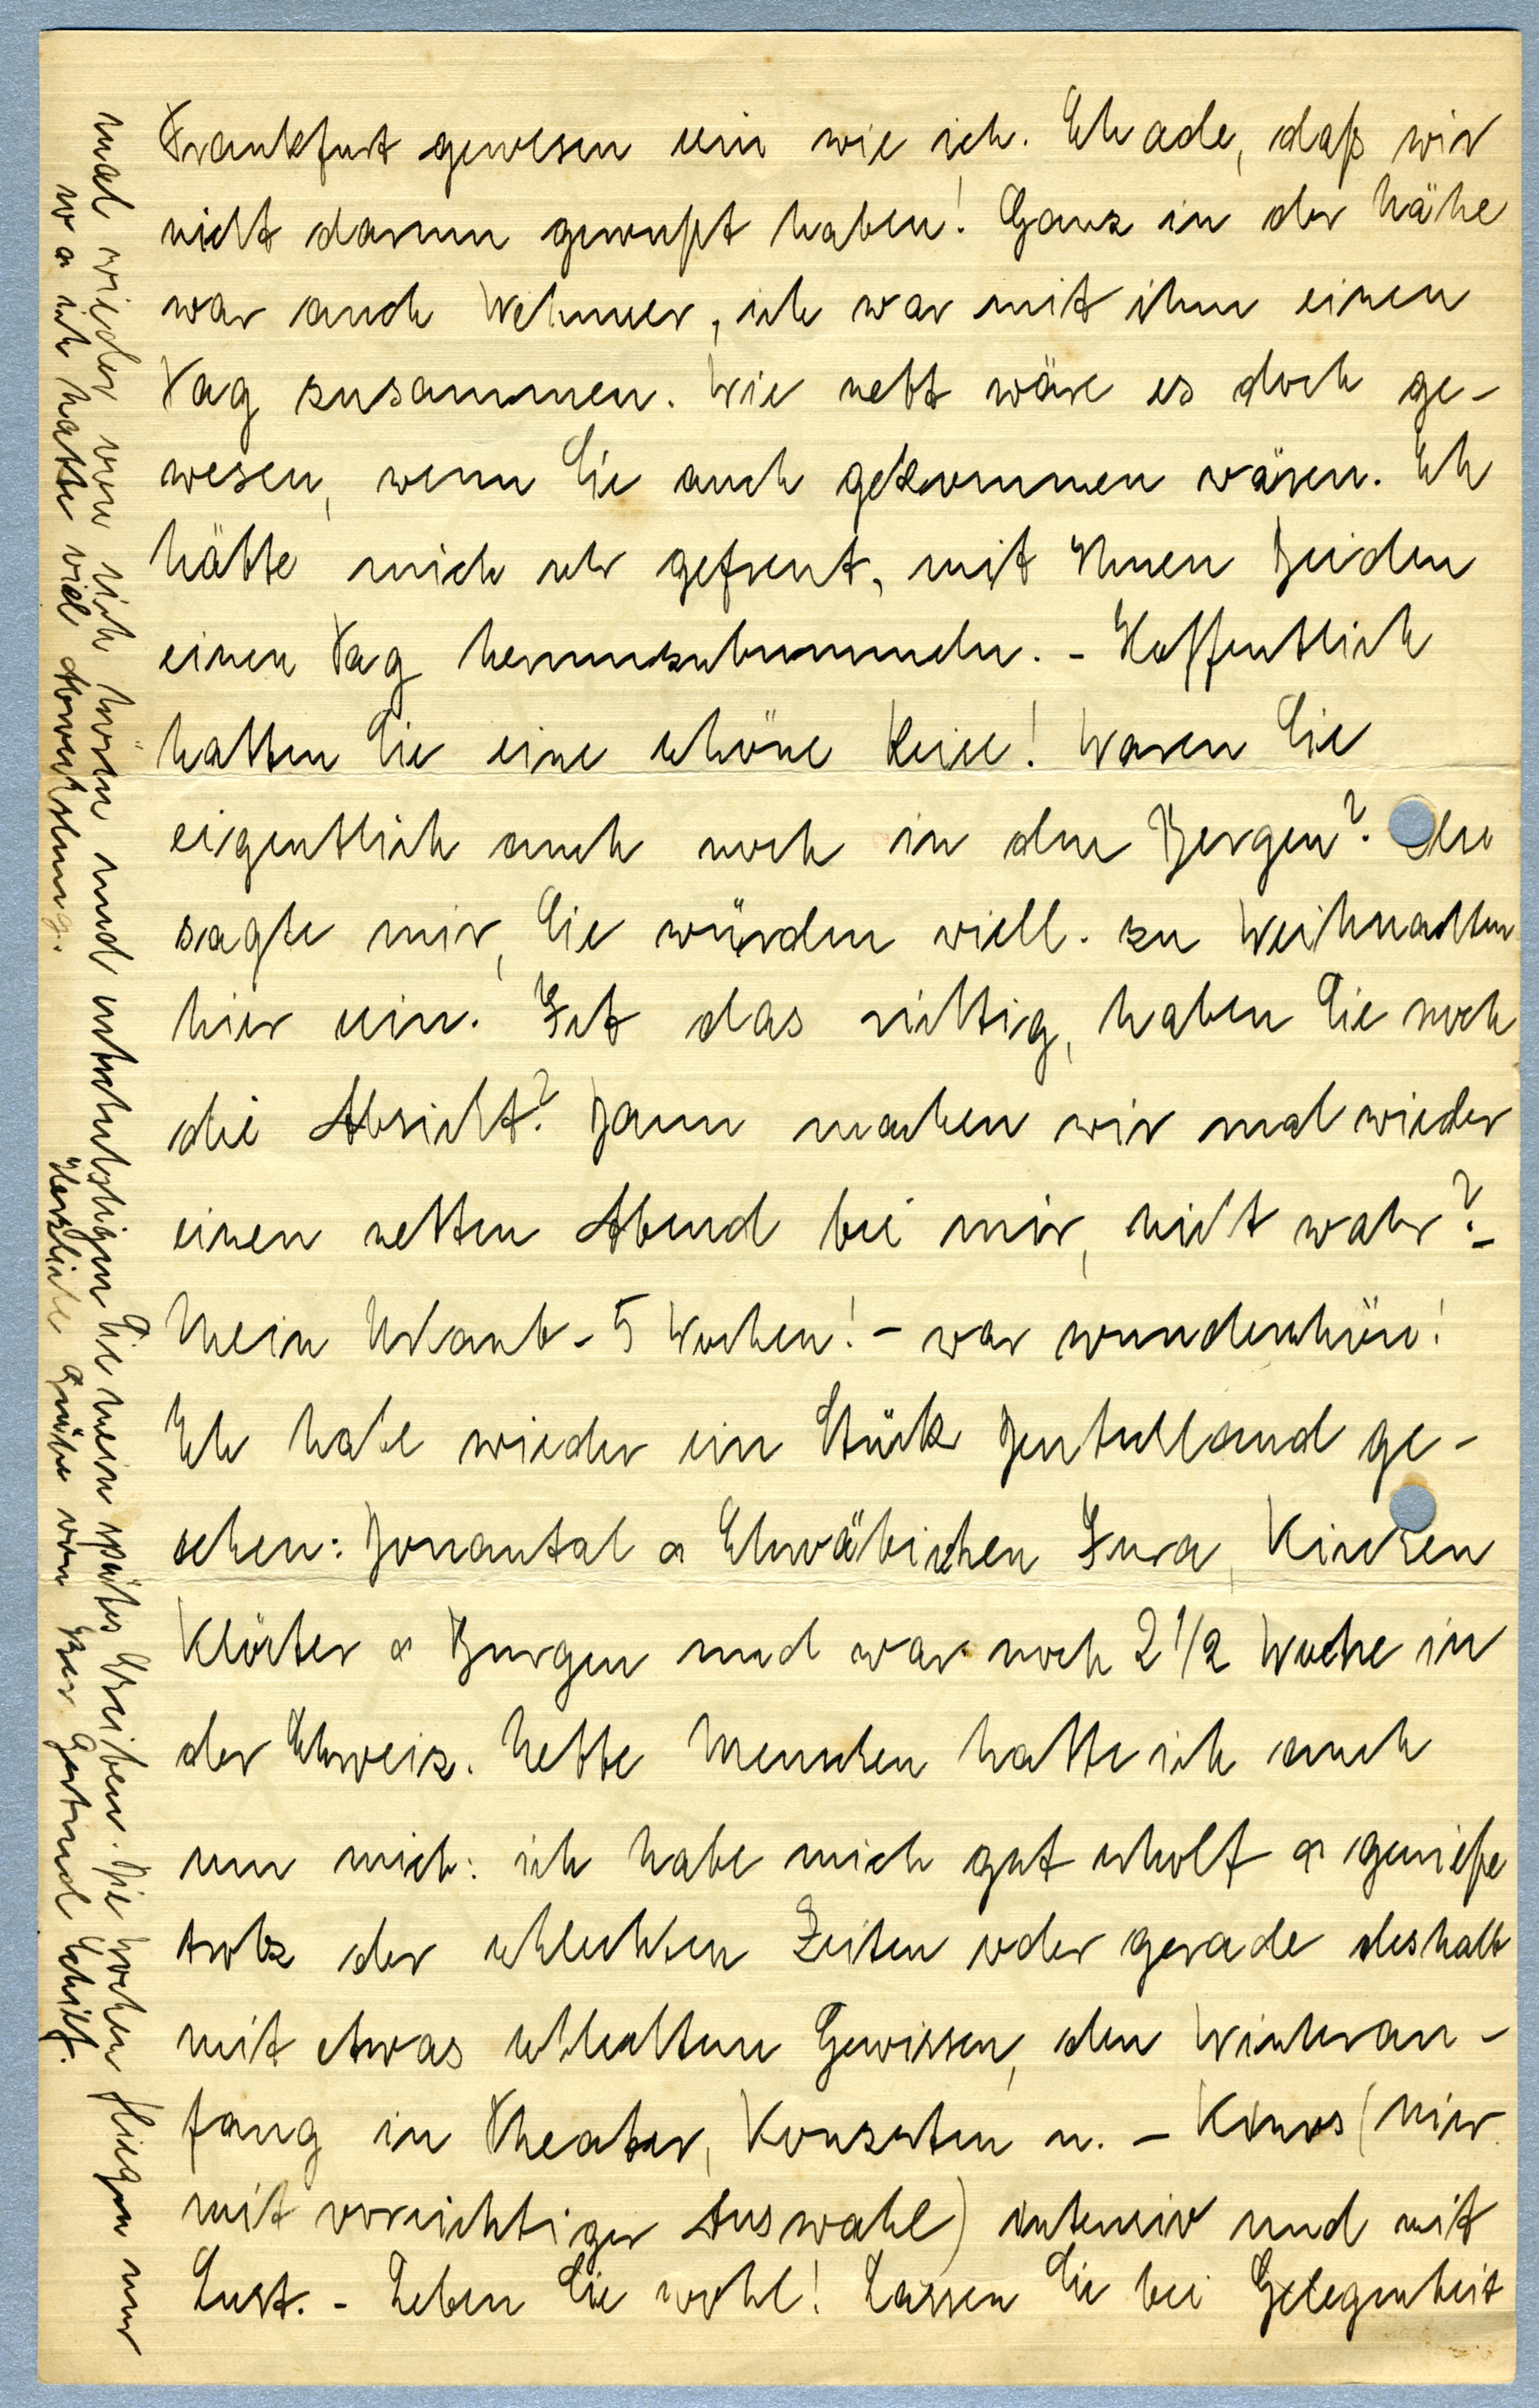 Frankfurt gewesen sein wie ich. Schade, daß wir
nicht darum gewußt haben! Ganz in der Nähe
war auch Wehmer, ich war mit ihm einen
Tag zusammen. Wie nett wäre es doch ge-
wesen, wenn Sie auch gekommen wären. Ich
hätte mich sehr gefreut, mit Ihnen Beiden
einen Tag herumzubummeln. - Hoffentlich
hatten Sie eine schöne Reise! Waren Sie
eigentlich auch noch in den Bergen?
sagte mir, Sie würden viell. zu Weihnachten
hier sein. Ist das richtig, haben Sie noch
die Absicht? Dann machen wir mal wieder
einen netten Abend bei mir, nicht wahr? -
Mein Urlaub - 5 Wochen! - war wunderschön!
Ich habe wieder ein Stück Deutschland ge-
sehen: Donautal & Schwäbischen Jura, Kirchen
Klöster & Burgen und war noch 2 1/2 Woche in
der Schweiz. Nette Menschen hatte ich auch
um mich: ich habe mich gut erholt & genieße
trotz der schlechten Zeiten oder gerade deshalb
mit etwas schlechtem Gewissen, den Winteran-
fang in Theater, Konzerten u. - Kinos (hier
mit vorsichtiger Auswahl) intensiv und mit
Lust. - Leben Sie wohl! Lassen Sie bei Gelegenheit
mal wieder von sich hören und entschuldigen Sie mein spätes Schreiben. Die Wochen fliegen nur
so & ich hatte viel Abwechslung. Herzliche Grüße von Ihrer Gertrud Schilf.